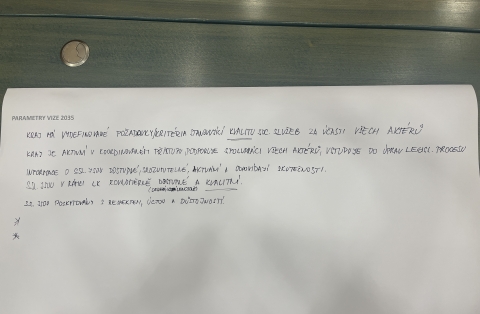 PARAMETRY VIZE 2035
KRAJ MÁ VYDEFINOVANÉ POŽADAVKY/KRITÉRIA STANOVUJÍCÍ KVALITU SOC. SLUŽEB ZA ÚČASTI VŠECH AKTÉRŮ
KRAJ JE AKTIVNÍ V KOORDINOVANÉM PODPORUJE SPOLUPRÁCI VŠECH AKTÉRŮ, VSTUPUJE DO ÚPRAV LEGISL. PROCESU
INFORMACE O DOSTUPNÉ, SROZUMITELNÉ, AKTUÁLNÍ A ODPOVÍDAJÍ SKUTEČNOSTI.
V RÁMCI LK DOSTUPNÉ A KVALITNÍ.
POSKYTOVÁNY S RESPEKTEM, ÚCTOU A DŮSTOJNOSTÍ.
*
*